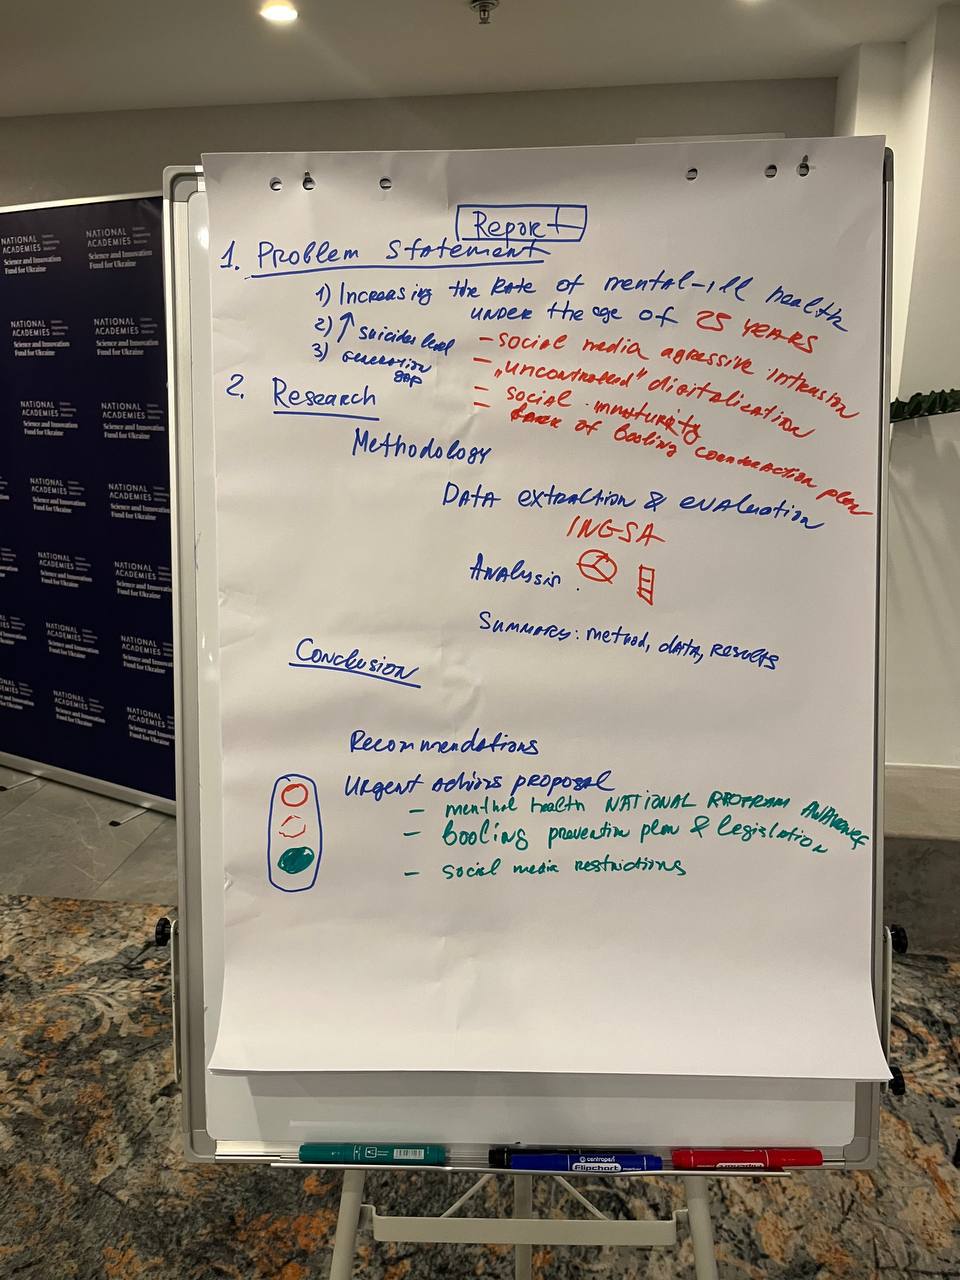 Report
1. Problem Statement
1) Increasing the Rate of mental-ill health
under the age of 25 years
2) ↑ suicides level
3) Generation gap
- social media agressive intrusion
- „uncontrolled" digitalization
- social immturity
- lack of booling counteraction plan
2. Research
Methodology
Data extraction & evaluation
INGSA
Analysis
Summary: method, data, results
Conclusion
Recommendations
Urgent actions proposal
- menthal health NATIONAL PROGRAM Awareness
- booling prevention plan & legislation
- social media restrictions
NATIONAL ACADEMIES
Science and Innovation
Fund for Ukraine
centropen
Flipchart